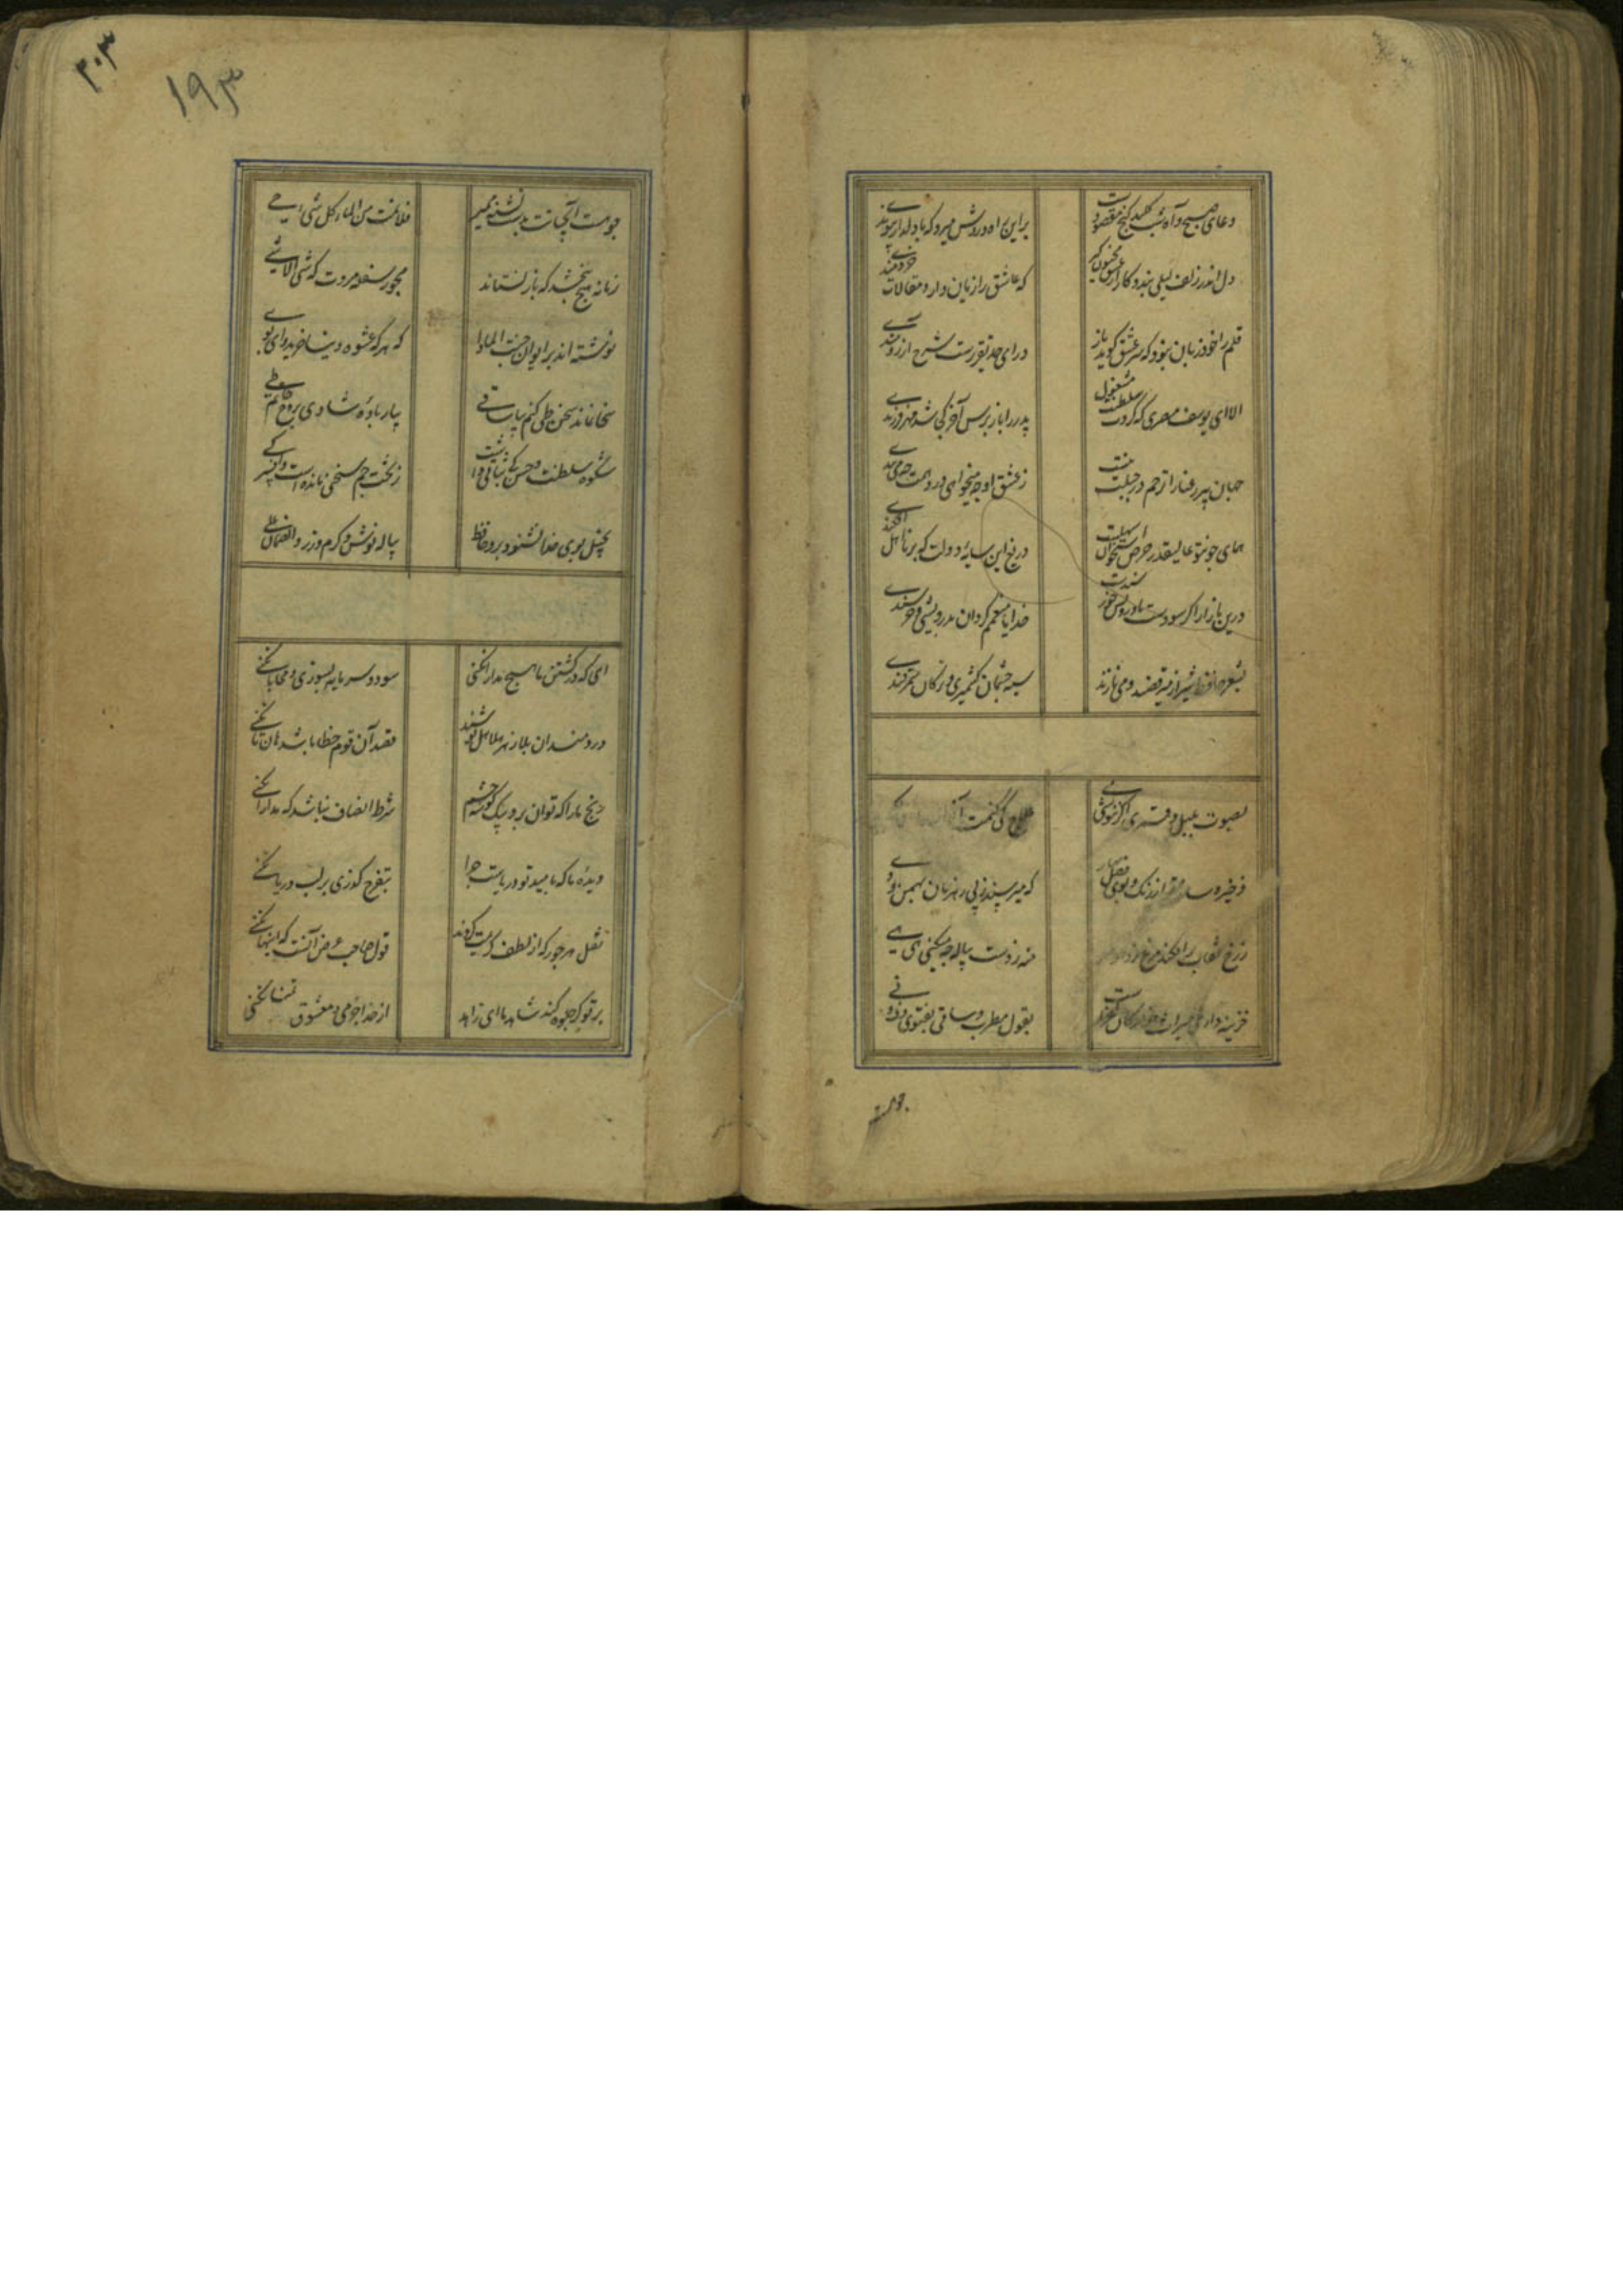 دعای صبح و آه شب کلید کنج مقصودست
براین راه و روش میرو که با دلدار پیوندے
دل اندر زلف لیلی بند و کار از عشق مجنون کن
که عاشق را زیان دارد مقالات خردمندے
قلم را خود زبان نبود که سر عشق کوید باز
ورای حد تقریرست شرح آرزومندے
الا ای یوسف مصری که کردت سلطنت مشغول
پدر را باز پرس آخر کجا شد مهر فرزندے
جهان پیر رعنا را ترحم در جبلت نیست
ز عشق او چه میخواهی در و همت چه می بندے
همای چون تو عالیقدر حرص استخوان
دریغ این سایهٔ دولت که بر نااهل افکندے
درین بازار اکر سودست با درویش خورسندست
خدایا منعمم کردان بدرویشی و خرسندے
بشعر حافظ شیراز میرقصند و می نازند
سیه چشمان کشمیری و ترکان سمرقندے
بصوت بلبل و قمری اکر ننوشی مے
علاج کی کنمت آخر
ذخیره از رنک و بوی فصل بهار
که میرسند ز پی رهزنان بهمن و دے
منه ز دست پیاله چه میکنی هی هے
خزینه داری میراث خوارکان کفرست
بقول مطرب و ساقی بفتوی دف و نے
۳۰۳
۱۹۳
چو هست آب حیاتت بدست تشنه ممیر
فلا تمت من الماء کل شیء حے
زمانه هیچ نبخشد که باز نستاند
مجو ز سفله مروت که شیه لا شے
نوشته اند بر ایوان جنت الماوا
که هر که عشوه دنیا خرید وای بوے
سخا نماند سخن طی کنم بیا ساقے
بیار باده شادی روح حاتم طے
شکوه سلطنت و حسن کی ثباتی داشت
ز تخت جم سخنی مانده است و افسر کے
بخیل بوی خدا نشنود برو حافظ
پیاله نوش و کرم ورز والضمان علے
ای که در کشتن ما هیچ مدارا نکنی
سود و سرمایه بسوزی و محابا نکنے
دردمندان بلا زهر هلاهل نوشند
قصد آن قوم خطا باشد هان تا نکنے
رنج ما را که توان برد بیک کوشه چشم
شرط انصاف نباشد که مدارا نکنے
دیدهٔ ما که بامید تو دریاست چرا
بتفرج کذری بر لب دریا نکنے
نقل هر جور که از لطف کریمت کردند
قول صاحب غرض آنست که اینها نکنے
بر تو کر جلوه کند شاهد ما ای زاهد
از خدا جز می و معشوق تمنا نکنی